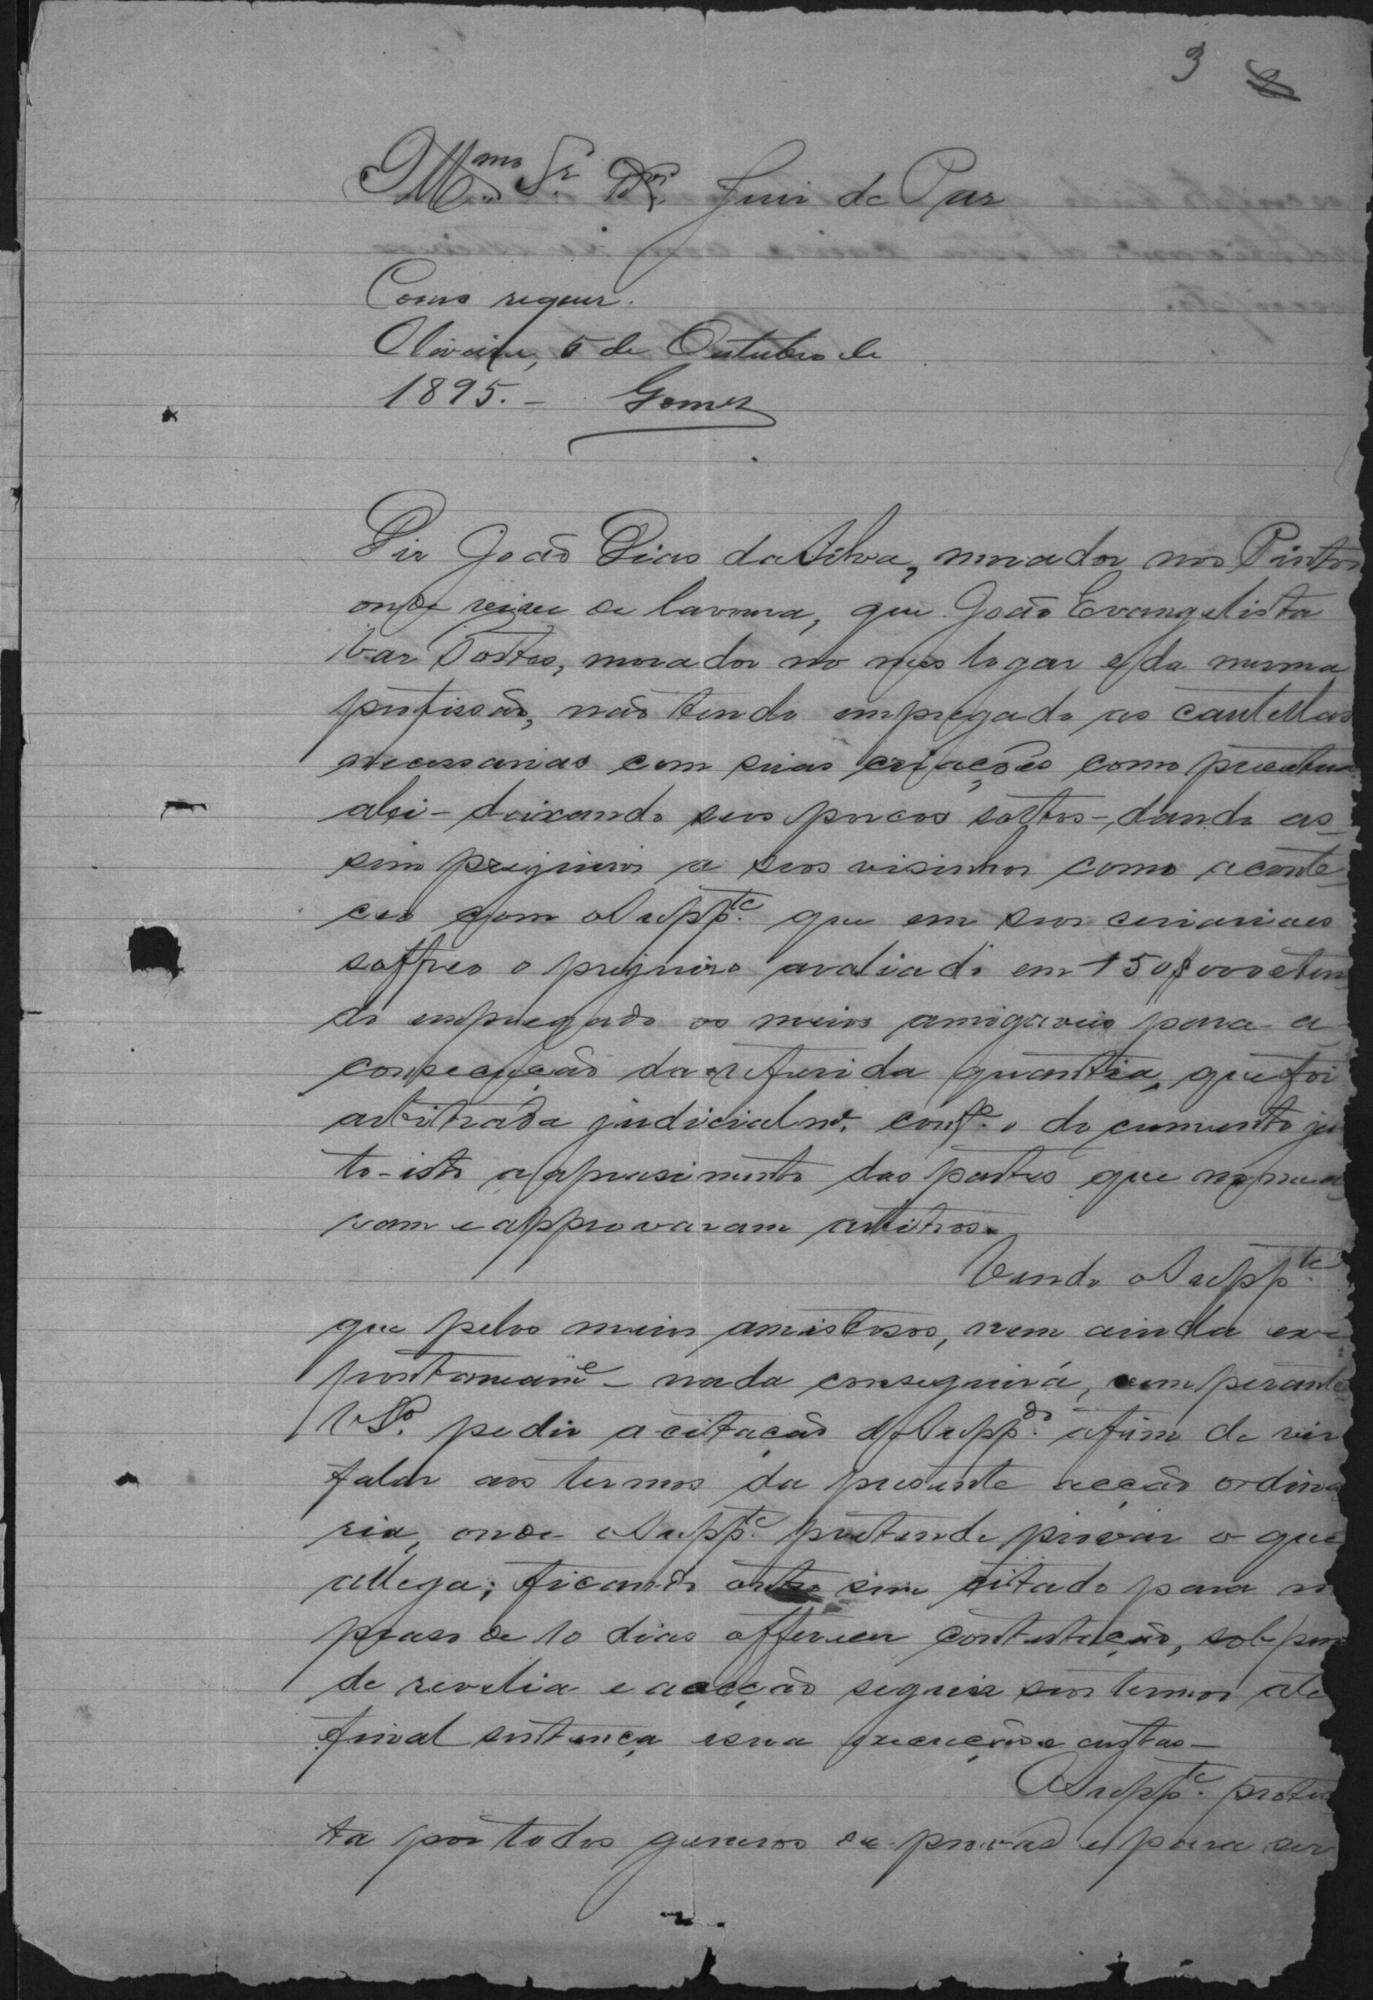 3
Illmo Sr. Juiz de Paz
Como requer.
Oliveira, 5 de Outubro de
1895. - Gomes
Diz João Dias da Silva, morador nos Pintos
onde vive de lavoura, que João Evangelista
Vaz Tostes, morador no mes logar e da mesma
profissão, não tendo empregado as cautellas
necessarias com suas criações como
alei - deixando seos porcos soltos - dando as-
sim prejuisos a seos visinhos como aconte-
ceo com o Suppte. que em seos
soffreo o prejuiso avaliado em 150$000 e ten
do empregado os meios amigaveis para a
consecução da referida quantia, que foi
arbitrada judicialme. confe. o documento ju
to - isto a aprasimento das partes que nomea
ram e approvaram arbitros.
Vendo o Suppte.
que pelos meios amistosos, nem ainda es
pontaneame - nada conseguirá, vem perante
V Sa. pedir a citação do Suppdo. afim de vir
falar aos termos da presente acção ordina
ria, onde o Suppte. pretende provar o que
allega; ficando outro sim citado para no
praso de 10 dias offerecer contestação, sob pena
de revelia e a acção seguir seos termos até
final sentença e sua execução e custas -
O Suppte. protes
ta por todos generos de provas e para ser